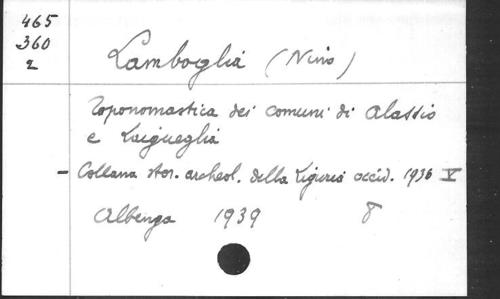 465
360
2
Lamboglia (Nino)
Toponomastica dei comuni di Alassio
e Laigueglia
- Collana stor. archeol. della Liguria occid. 1936 V
Albenga 1939 8